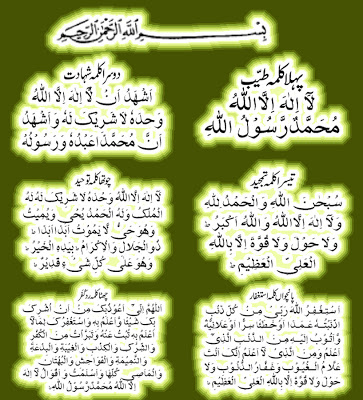 بِسْمِ اللّٰهِ الرَّحْمٰنِ الرَّحِيْمِ
پہلا کلمہ طیّب
لَآ اِلٰهَ اِلَّا اللّٰهُ
مُحَمَّدٌ رَّسُوْلُ اللّٰهِ
دوسرا کلمہ شہادت
اَشْهَدُ اَنْ لَّآ اِلٰهَ اِلَّا اللّٰهُ
وَحْدَهٗ لَا شَرِيْكَ لَهٗ وَاَشْهَدُ
اَنَّ مُحَمَّدًا عَبْدُهٗ وَرَسُوْلُهٗ
تیسرا کلمہ تمجید
سُبْحٰنَ اللّٰهِ وَالْحَمْدُ لِلّٰهِ
وَلَآ اِلٰهَ اِلَّا اللّٰهُ وَاللّٰهُ اَكْبَرُ
وَلَا حَوْلَ وَلَا قُوَّةَ اِلَّا بِاللّٰهِ
الْعَلِيِّ الْعَظِيْمِ
چوتھا کلمہ توحید
لَآ اِلٰهَ اِلَّا اللّٰهُ وَحْدَهٗ لَا شَرِيْكَ لَهٗ لَهُ
الْمُلْكُ وَلَهُ الْحَمْدُ يُحْيٖ وَيُمِيْتُ
وَهُوَ حَيٌّ لَّا يَمُوْتُ اَبَدًا اَبَدًا
ذُو الْجَلَالِ وَالْاِكْرَامِ بِيَدِهِ الْخَيْرُ
وَهُوَ عَلٰى كُلِّ شَیْءٍ قَدِيْرٌ
پانچواں کلمہ استغفار
اَسْتَغْفِرُ اللّٰهَ رَبِّيْ مِنْ كُلِّ ذَنْۢبٍ
اَذْنَبْتُهٗ عَمَدًا اَوْ خَطَأً سِرًّا اَوْ عَلَانِيَةً
وَّاَتُوْبُ اِلَيْهِ مِنَ الذَّنْۢبِ الَّذِيْٓ
اَعْلَمُ وَمِنَ الَّذِيْ لَآ اَعْلَمُ اِنَّكَ اَنْتَ
عَلَّامُ الْغُيُوْبِ وَغَفَّارُ الذُّنُوْبِ وَلَا
حَوْلَ وَلَا قُوَّةَ اِلَّا بِاللّٰهِ الْعَلِيِّ الْعَظِيْمِ
چھٹا کلمہ ردِّ کفر
اَللّٰهُمَّ اِنِّيْٓ اَعُوْذُ بِكَ مِنْ اَنْ اُشْرِكَ
بِكَ شَيْئًا وَّاَنَا اَعْلَمُ بِهٖ وَاَسْتَغْفِرُكَ لِمَا لَآ
اَعْلَمُ بِهٖ تُبْتُ عَنْهُ وَتَبَرَّأْتُ مِنَ الْكُفْرِ
وَالشِّرْكِ وَالْكِذْبِ وَالْغِيْبَةِ وَالْبِدْعَةِ
وَالنَّمِيْمَةِ وَالْفَوَاحِشِ وَالْبُهْتَانِ
وَالْمَعَاصِيْ كُلِّهَا وَاَسْلَمْتُ وَاَقُوْلُ لَآ اِلٰهَ
اِلَّا اللّٰهُ مُحَمَّدٌ رَّسُوْلُ اللّٰهِ